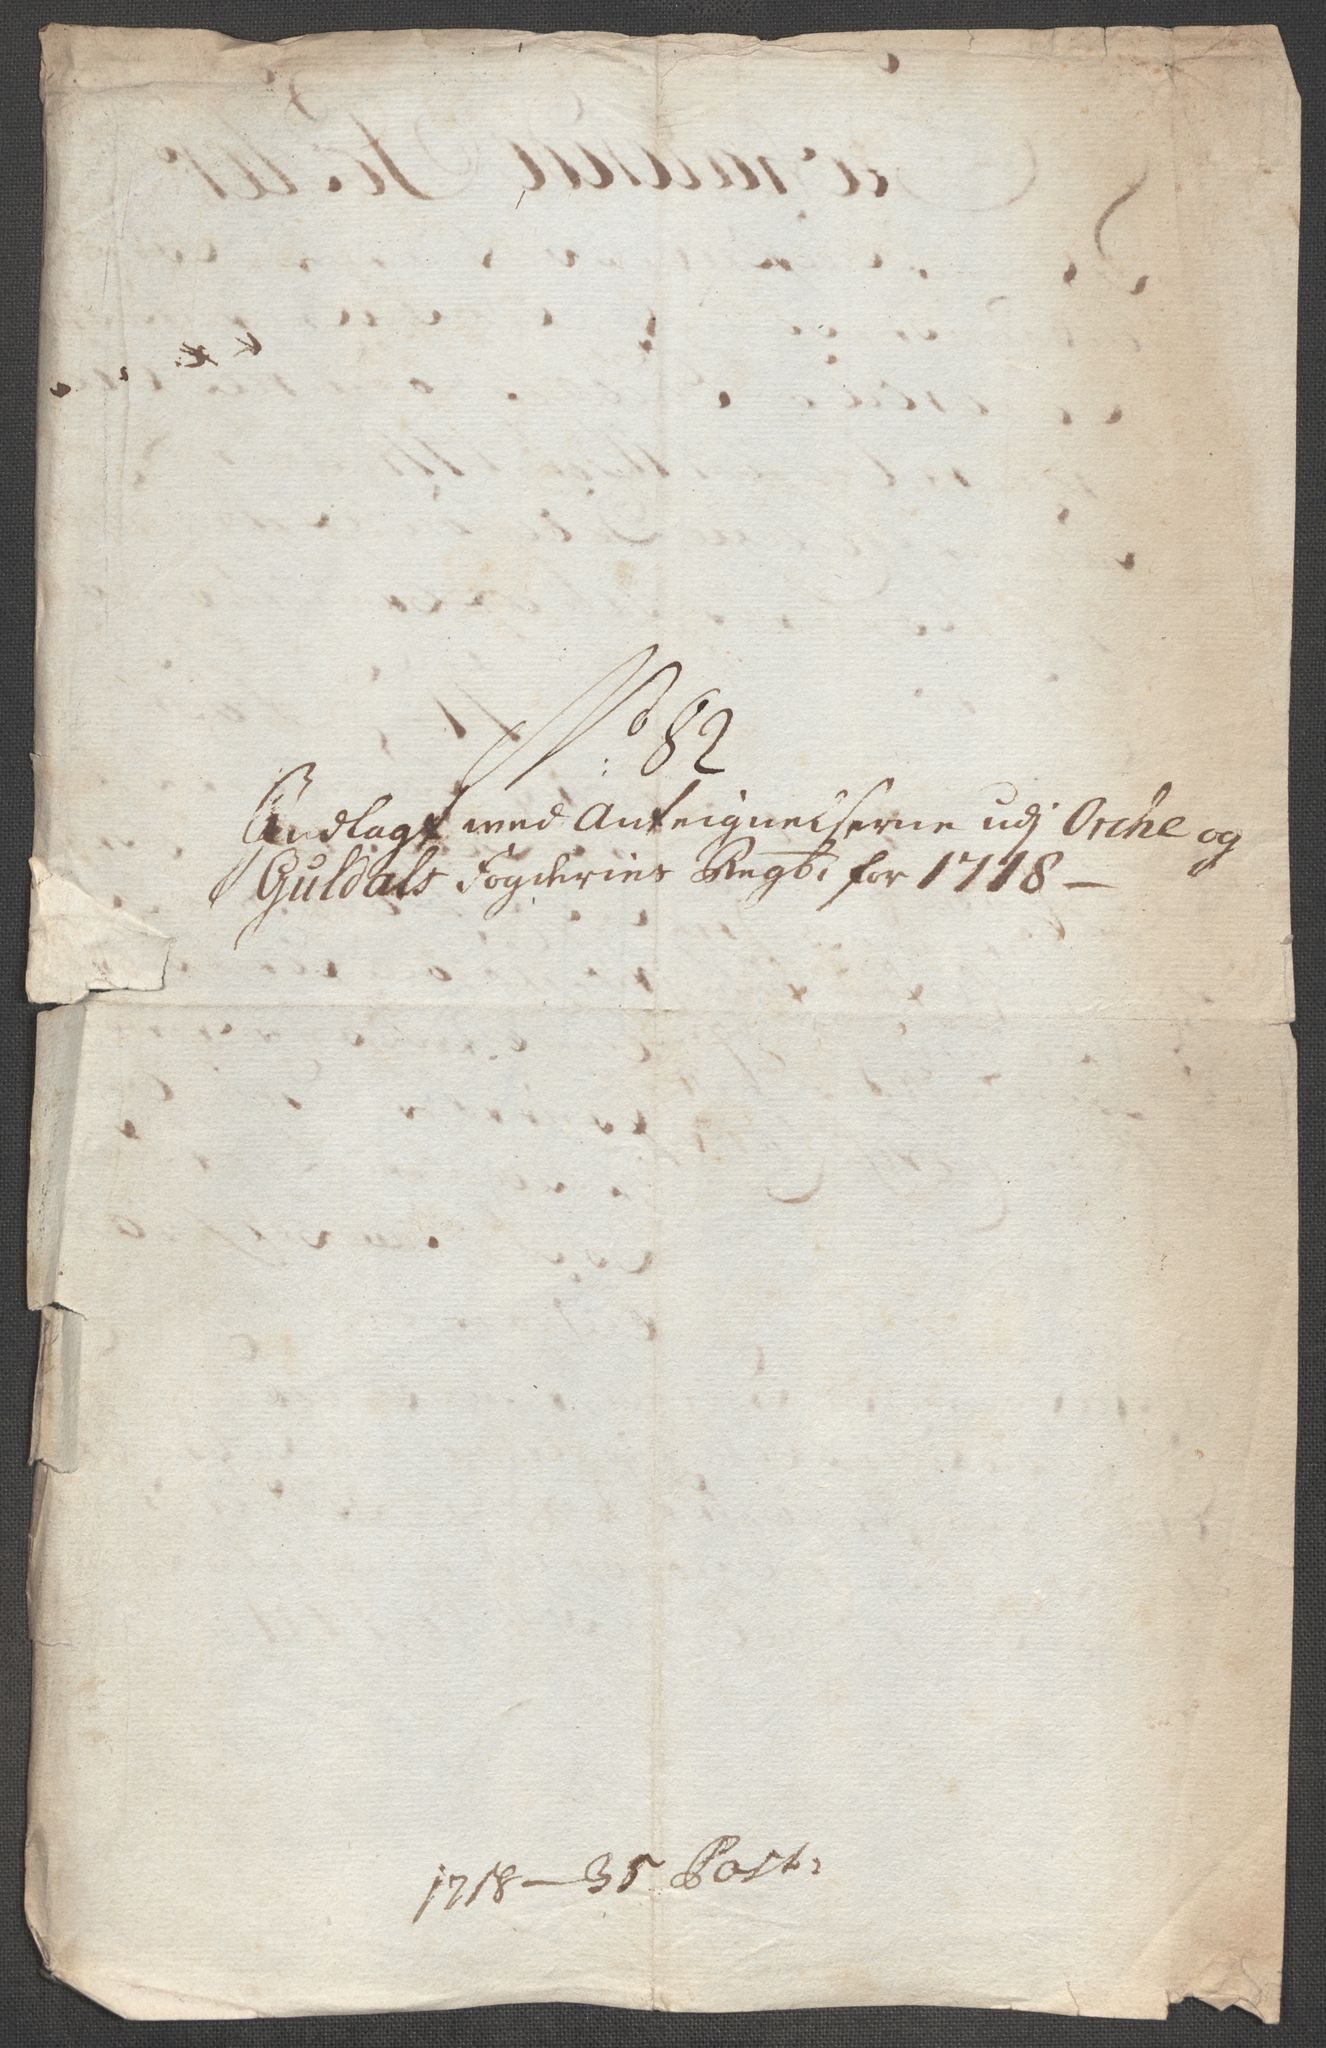 No: 82
Indlagt med Anteignelserne udj Orche og
Guldals Fogderies Regb: for 1718 —
1718 — 35 Post: